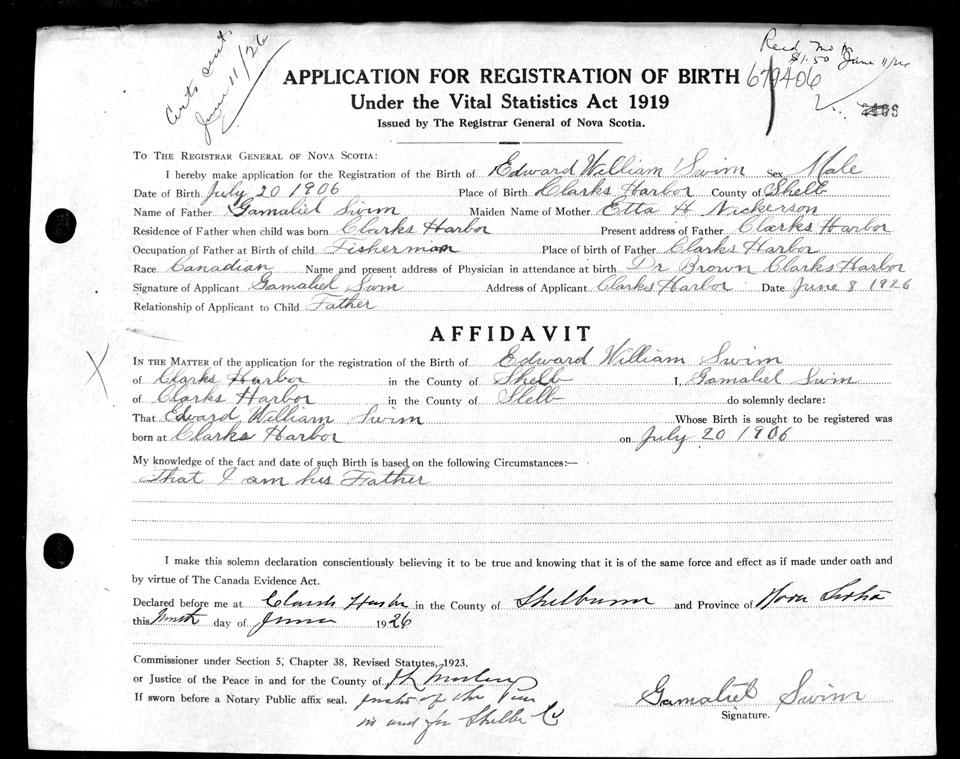 Certs sent
June 11/26
Recd Mo
$1.50 June 11/26
679406
APPLICATION FOR REGISTRATION OF BIRTH
Under the Vital Statistics Act 1919
Issued by The Registrar General of Nova Scotia.
TO THE REGISTRAR GENERAL OF NOVA SCOTIA:
I hereby make application for the Registration of the Birth of Edward William Swim Sex Male
Date of Birth July 20 1906 Place of Birth Clarks Harbor County of Shelb
Name of Father Gamaliel Swim Maiden Name of Mother Etta H Nickerson
Residence of Father when child was born Clarks Harbor Present address of Father Clarks Harbor
Occupation of Father at Birth of child Fisherman Place of birth of Father Clarks Harbor
Race Canadian Name and present address of Physician in attendance at birth Dr Brown Clarks Harbor
Signature of Applicant Gamaliel Swim Address of Applicant Clarks Harbor Date June 8 1926
Relationship of Applicant to Child Father
AFFIDAVIT
IN THE MATTER of the application for the registration of the Birth of Edward William Swim
of Clarks Harbor in the County of Shelb I, Gamaliel Swim
of Clarks Harbor in the County of Shelb do solemnly declare:
That Edward William Swim Whose Birth is sought to be registered was
born at Clarks Harbor on July 20 1906
My knowledge of the fact and date of such Birth is based on the following Circumstances:—
That I am his Father
I make this solemn declaration conscientiously believing it to be true and knowing that it is of the same force and effect as if made under oath and
by virtue of The Canada Evidence Act.
Declared before me at Clarks Harbor in the County of Shelburne and Province of Nova Scotia
this Ninth day of June 1926
Commissioner under Section 5, Chapter 38, Revised Statutes, 1923.
or Justice of the Peace in and for the County of
If sworn before a Notary Public affix seal. Justice of the Peace
in and for Shelb Co
Gamaliel Swim
Signature.